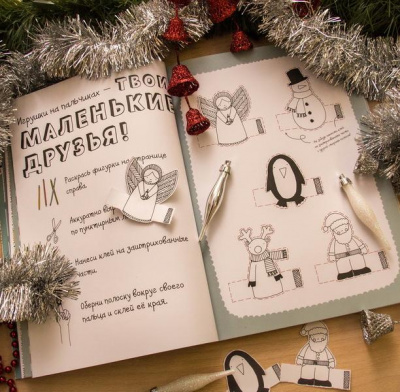 Игрушки на пальчиках –
ТВОИ
МАЛЕНЬКИЕ
ДРУЗЬЯ!
Раскрась фигурки на странице
справа.
Аккуратно
по пунктирным
Нанеси клей на заштрихованные
части.
Оберни полоску вокруг своего
пальца и склей её края.